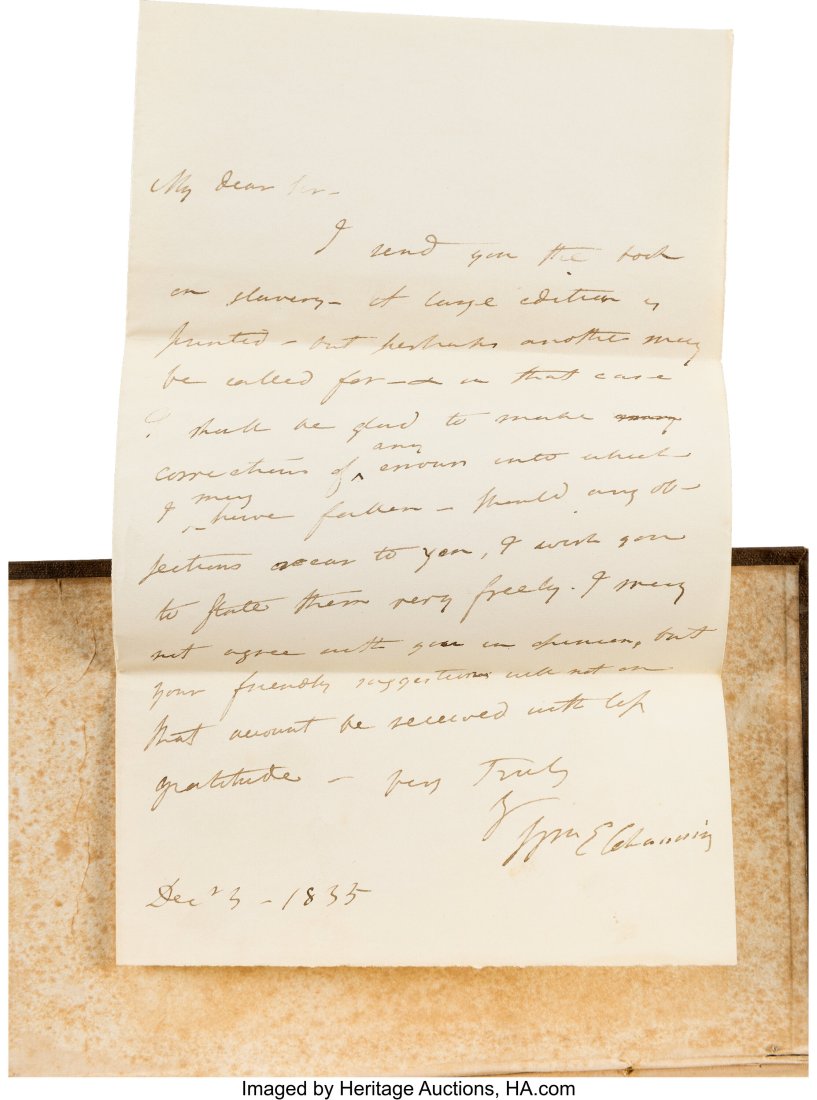 My dear Sir -
I send you the book
on slavery - A large edition is
printed - but perhaps another may
be called for - & in that case
I shall be glad to make many
any
corrections of ^ errours into which
may
I ^ have fallen - Should any ob-
jections occur to you, I wish you
to state them very freely. I may
not agree with you in opinion, but
your friendly suggestions will not on
that account be received with less
gratitude - very Truly
Yr
Wm E Channing
Decr 3 - 1835
Imaged by Heritage Auctions, HA.com